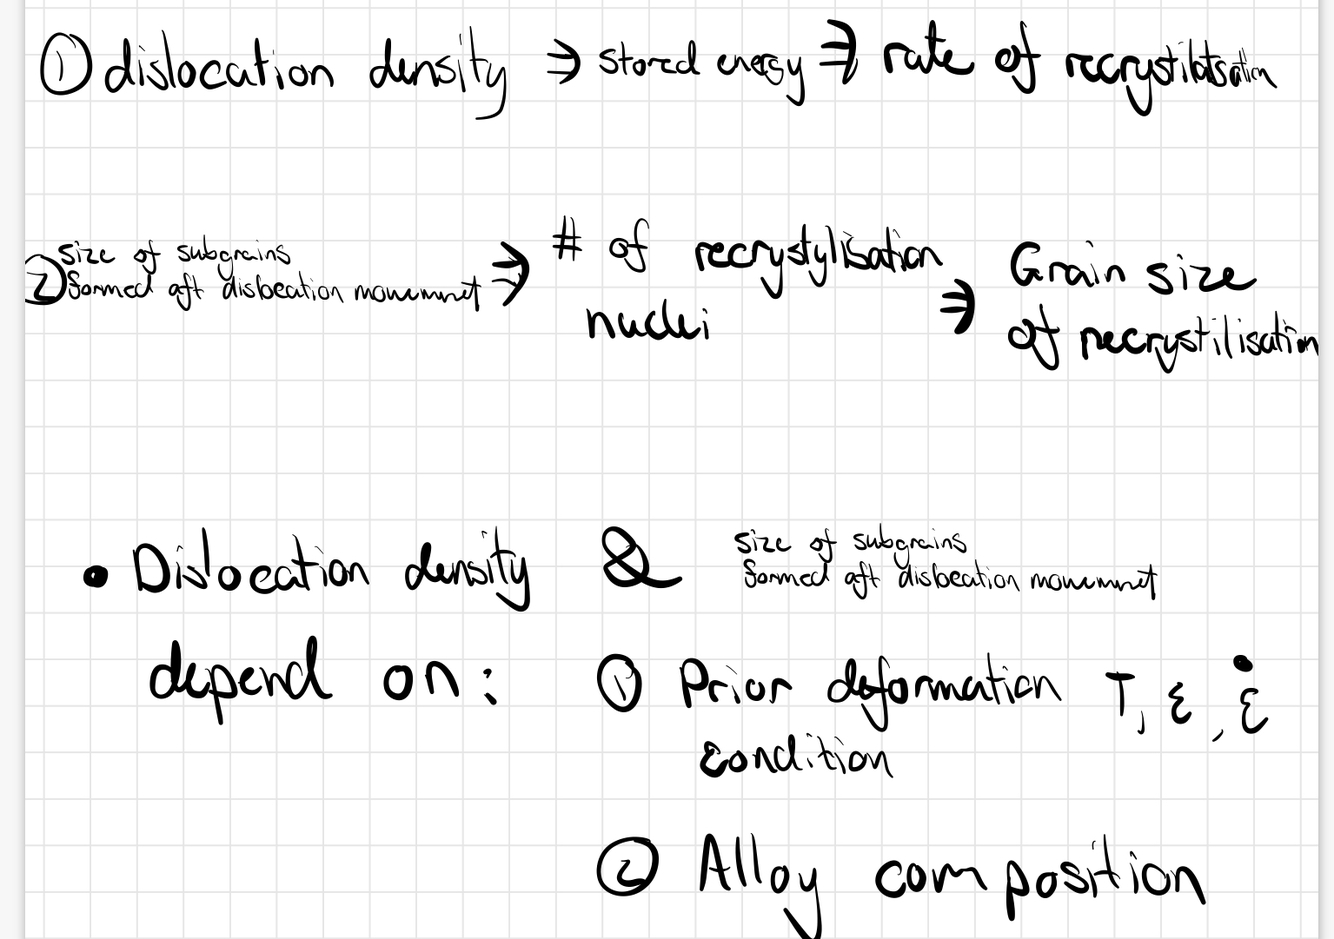 ① dislocation density ⇒ stored energy ⇒ rate of recrystilatsation
② size of subgrains
formed aft dislocation movemnet ⇒ # of recrystylisation
nuclei ⇒ Grain size
of recrystilisation
• Dislocation density & size of subgrains
formed aft dislocation movemnet
depend on: ① Prior deformation T, ε, ε̇
condition
② Alloy composition